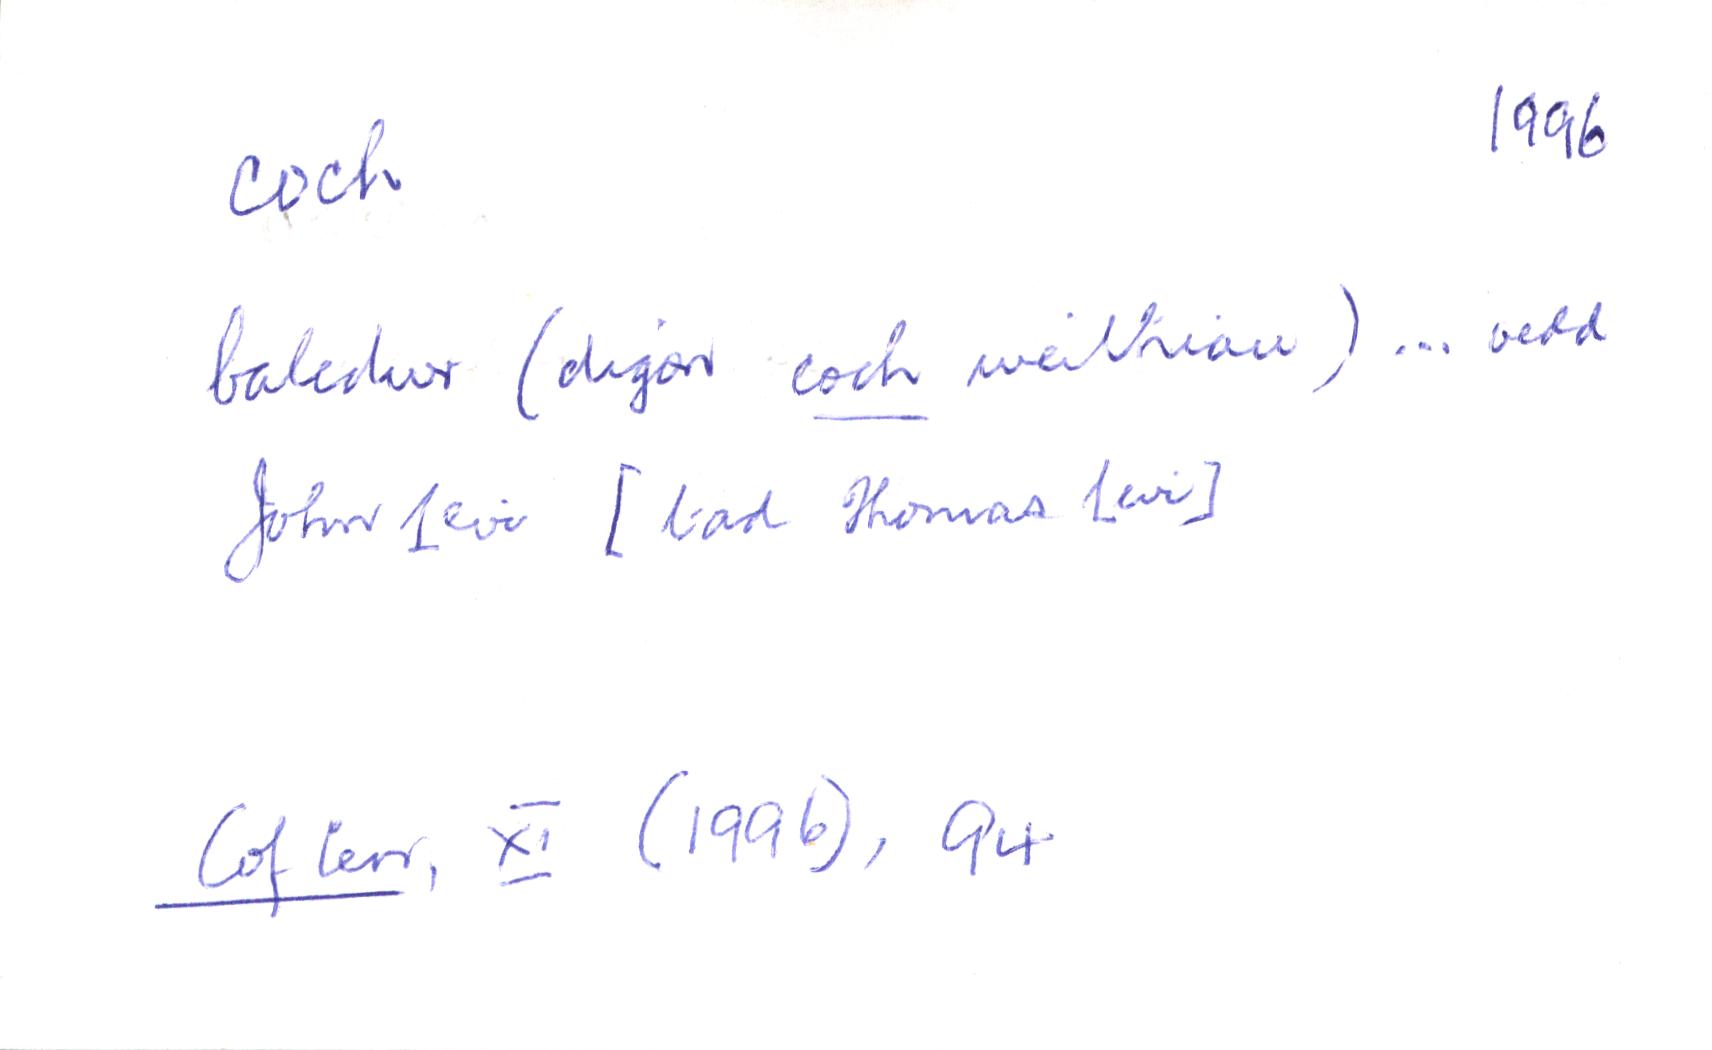 coch 1996
baledwr (digon coch weithiau) ... oedd
John Levi [tad Thomas Levi]
Cof Cen, XI (1996), 94